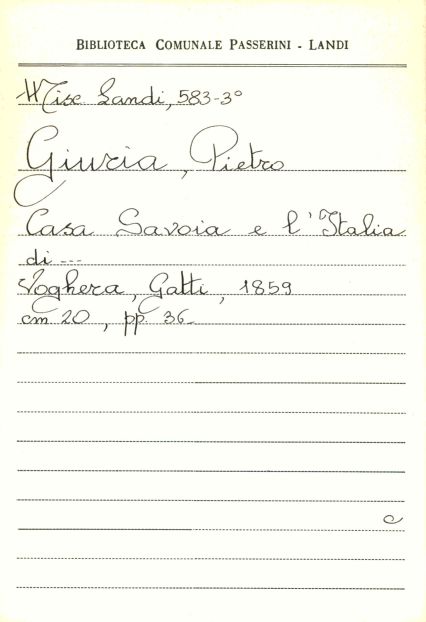 BIBLIOTECA COMUNALE PASSERINI - LANDI
Misc Landi, 583-3°
Giuria, Pietro
Casa Savoia e l'Italia
di ---
Voghera, Gatti, 1859
cm 20, pp. 36
c